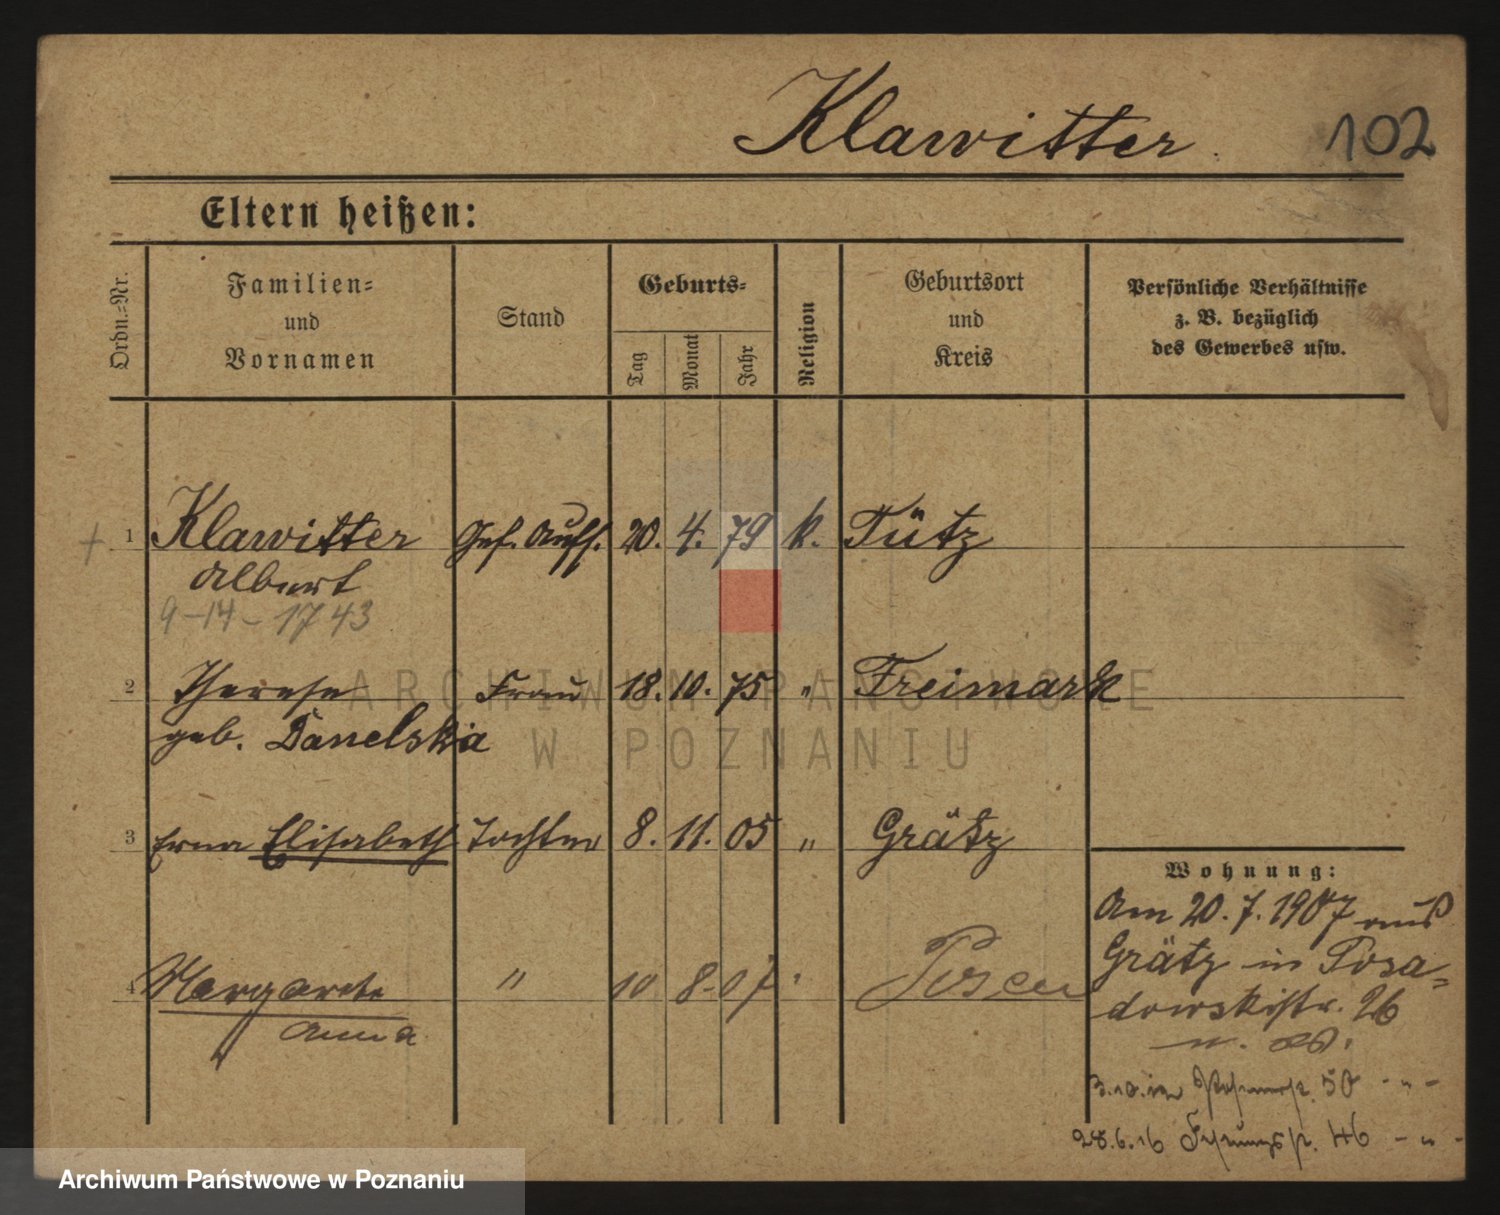 Klawitter. 102
Eltern heißen:
Ordn.-Nr.
Familien-
und
Vornamen
Stand
Geburts-
Tag
Monat
Jahr
Religion
Geburtsort
und
Kreis
Persönliche Verhältnisse
z. B. bezüglich
des Gewerbes usw.
+ 1 Klawitter Gef. Auff. 20. 4. 79 k. Tütz
Albert
9-14-1743
2 Therese Frau 18. 10. 75 " Freimark
geb. Danelska
3 Erna Elisabeth Tochter 8. 11. 05 " Grätz
Wohnung:
Am 20. 7. 1907 aus
Grätz in Posa-
dowskistr. 26
4 Margarete " 10 8. 07 Posen
Anna
3.10.12 50 - " -
28.6.16 Festungsstr. 46 - " -
ARCHIWUM PAŃSTWOWE
W POZNANIU
Archiwum Państwowe w Poznaniu